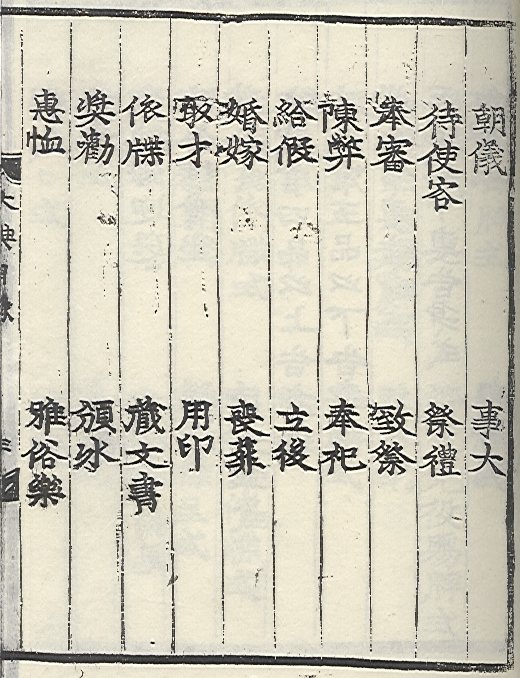 朝儀 事大
待使客 祭禮
奉審 致祭
陳弊 奉祀
給假 立後
婚嫁 喪葬
取才 用印
依牒 藏文書
奬勸 頒氷
惠恤 雅俗樂
大典目錄